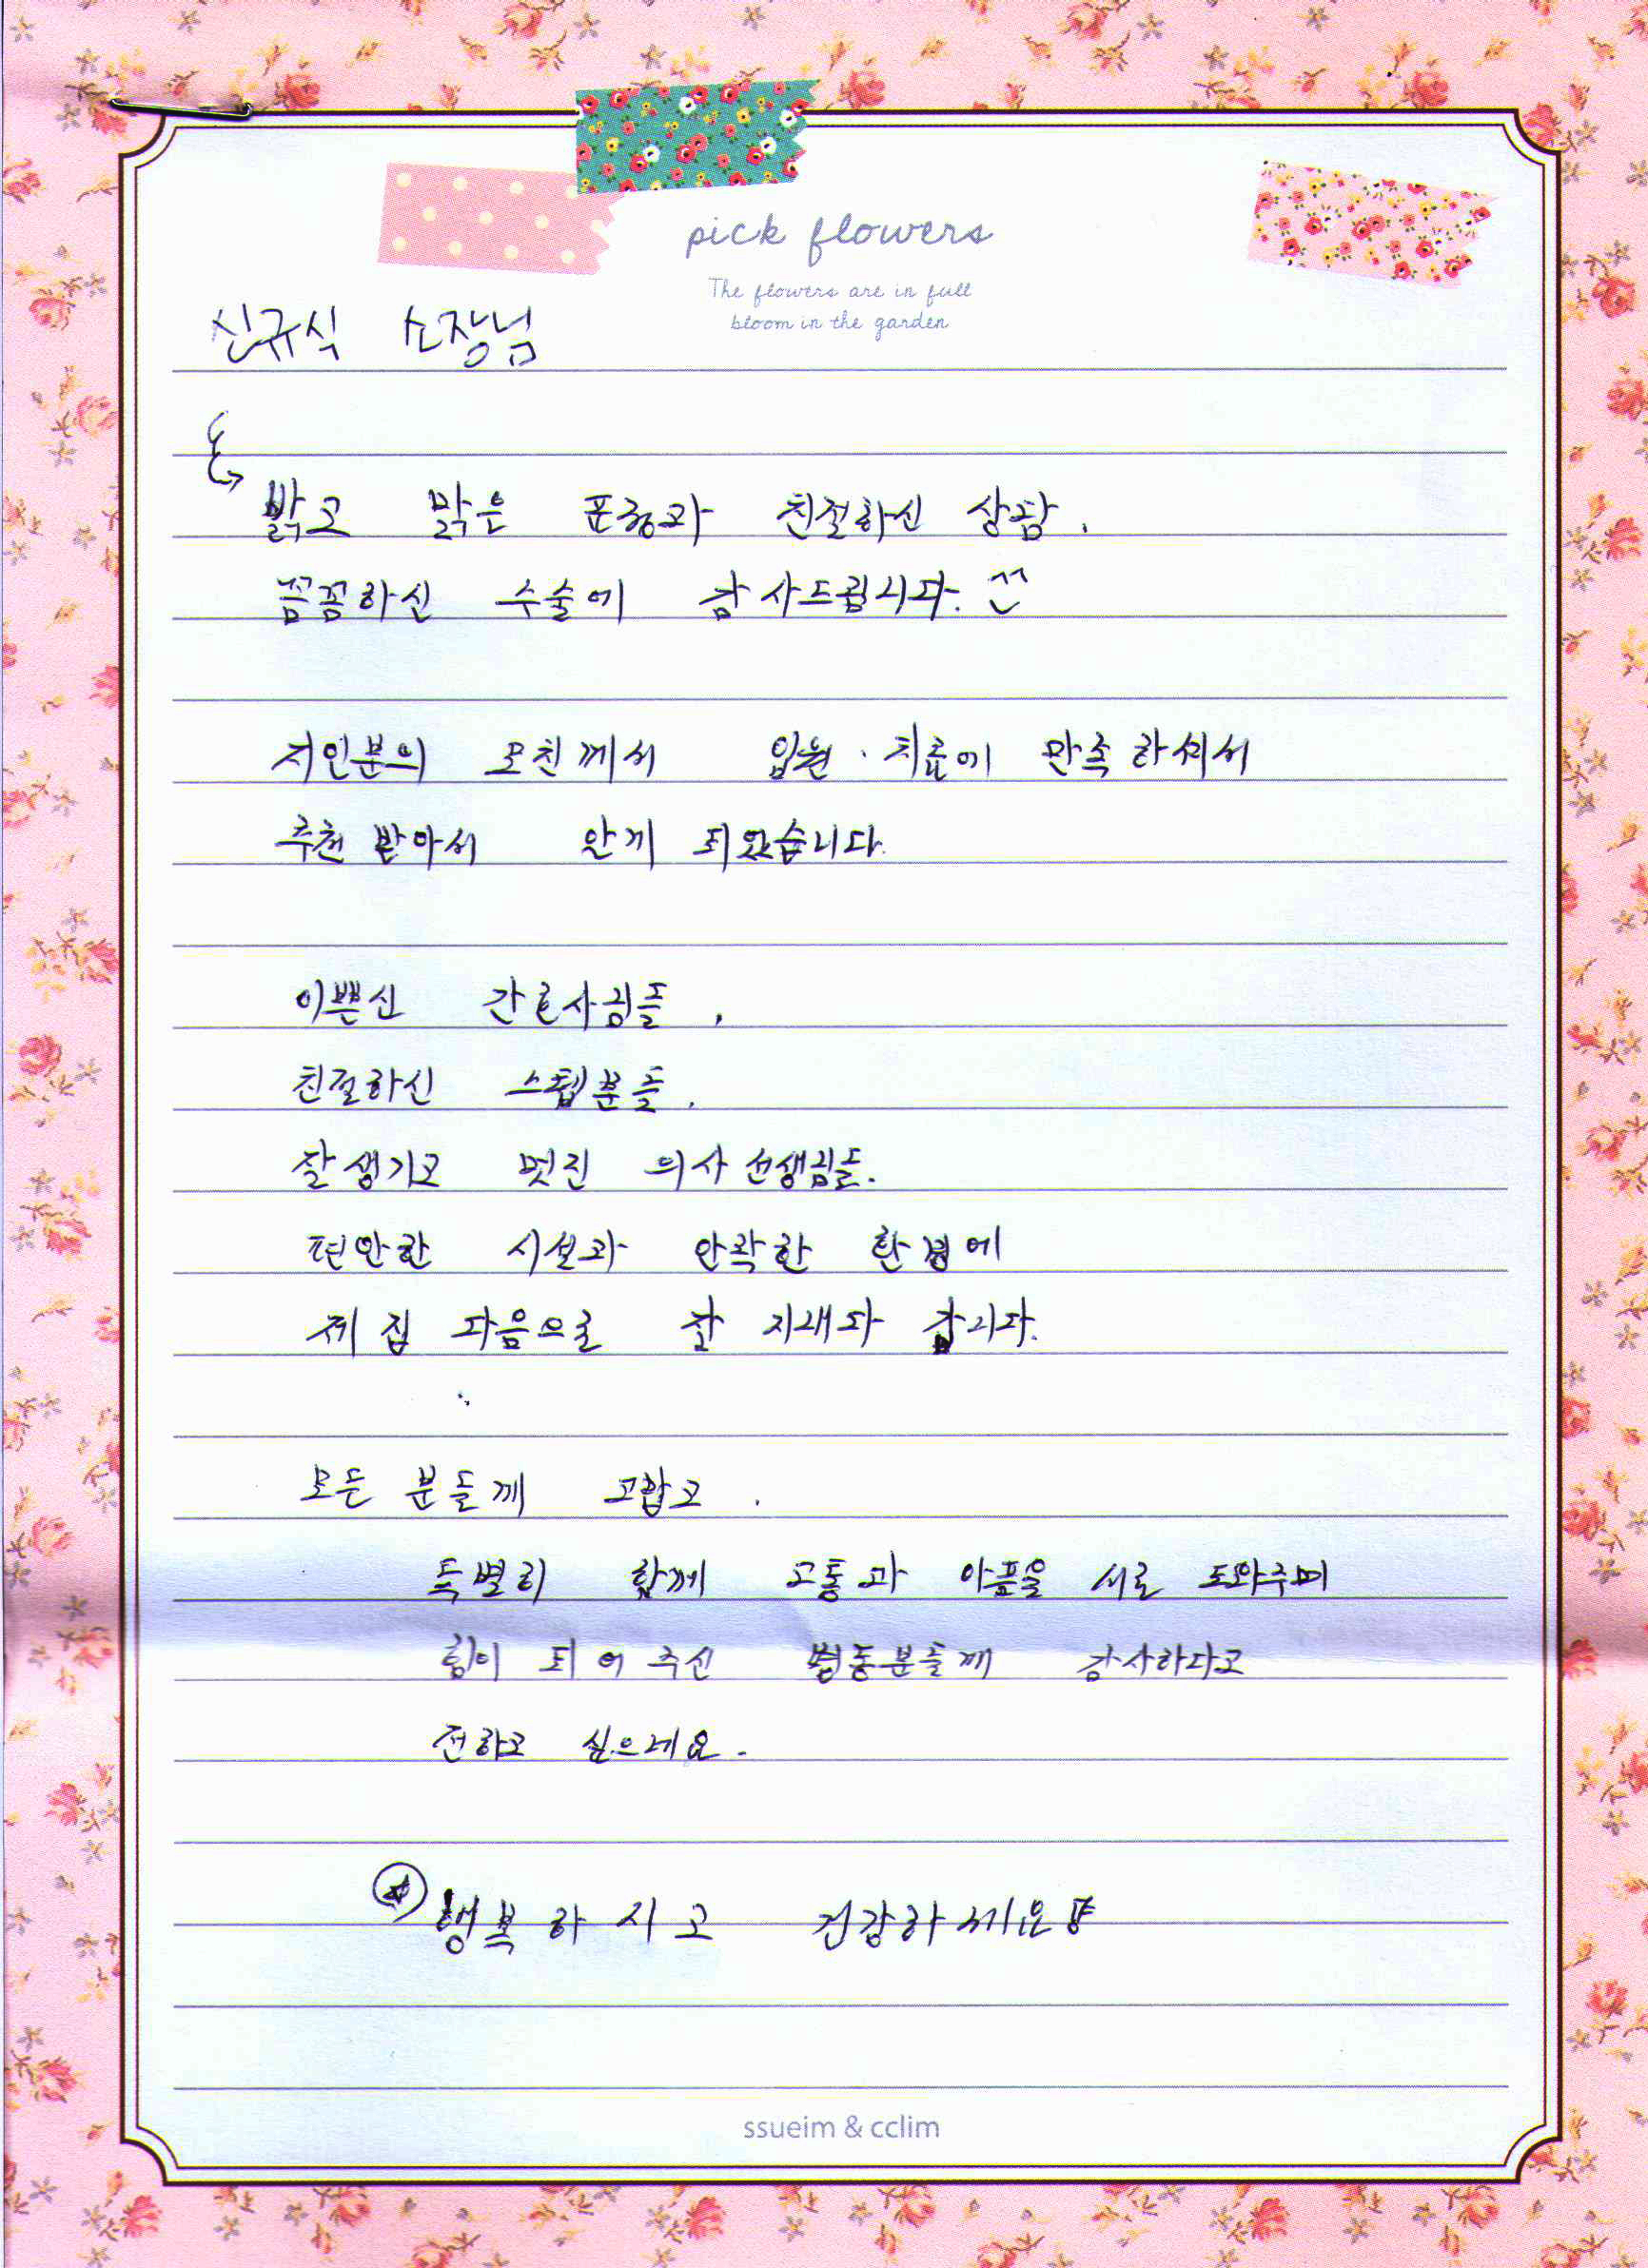 pick flowers
The flowers are in full
bloom in the garden
신규식 소장님
밝고 맑은 표정과 친절하신 상담.
꼼꼼하신 수술에 감사드립니다. ^^
지인분의 모친께서 입원 · 치료에 만족하셔서
추천 받아서 알게 되었습니다.
이쁜신 간호사님들,
친절하신 스텝분들,
잘생기고 멋진 의사선생님들.
편안한 시설과 안락한 환경에
제 집 다음으로 잘 지내다 갑니다.
모든 분들께 고맙고,
특별히 함께 고통과 아픔을 서로 도와주며
힘이 되어 주신 병동분들께 감사하다고
전하고 싶으네요.
행복하시고 건강하세요
ssueim & cclim